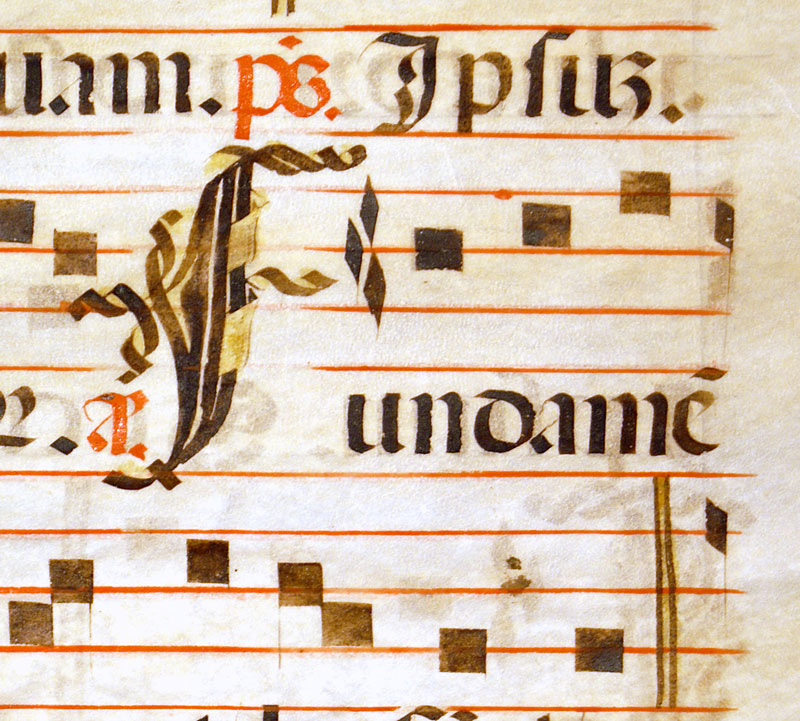 uam. ps. Ipsius.
a. Fundamē